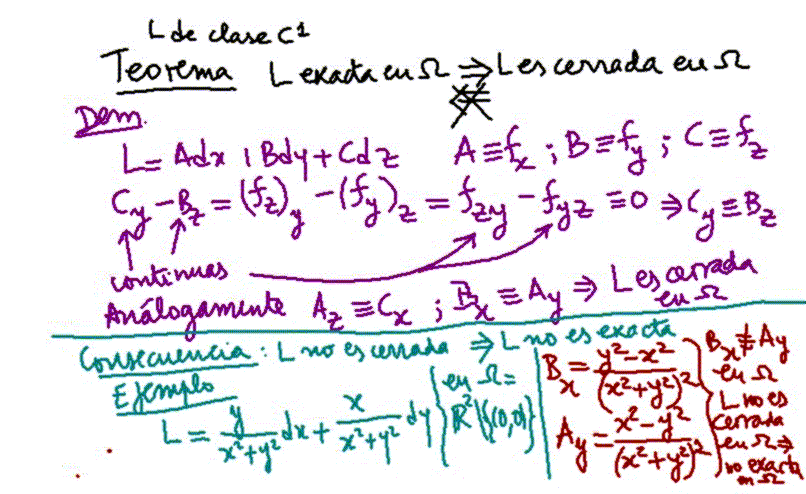 L de clase C¹
Teorema L exacta en Ω ⇒ L es cerrada en Ω
Dem.
L = Adx + Bdy + Cdz A ≡ f_x ; B ≡ f_y ; C ≡ f_z
C_y − B_z = (f_z)_y − (f_y)_z = f_zy − f_yz ≡ 0 ⇒ C_y ≡ B_z
continuas
Análogamente A_z ≡ C_x ; B_x ≡ A_y ⇒ L es cerrada
en Ω
Consecuencia : L no es cerrada ⇒ L no es exacta
Ejemplo
L = y/(x²+y²) dx + x/(x²+y²) dy
en Ω =
ℝ²\{(0,0)}
B_x = (y²−x²)/(x²+y²)²
A_y = (x²−y²)/(x²+y²)²
B_x ≢ A_y
en Ω
L no es
cerrada
en Ω ⇒
no exacta
en Ω